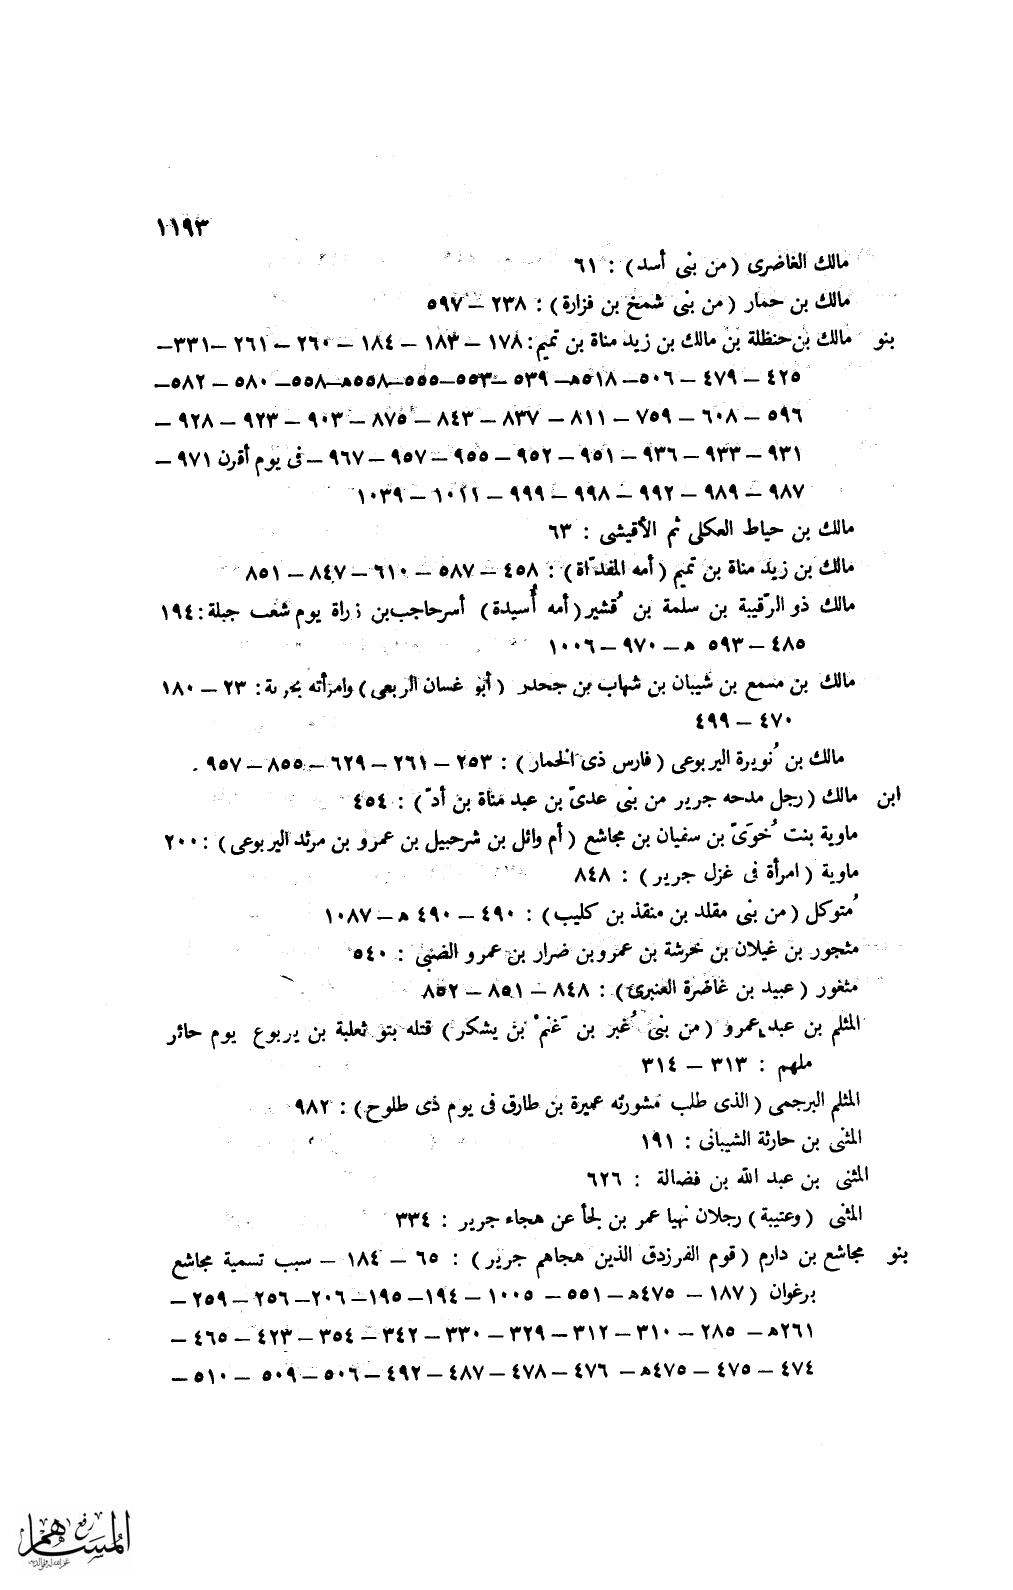 ١١٩٣
مالك الغاضرى (من بنى أسد) : ٦١
مالك بن حمار (من بنى شمخ بن فزارة) : ٢٣٨ – ٥٩٧
بنو مالك بن حنظلة بن مالك بن زيد مناة بن تميم: ١٧٨ – ١٨٣ – ١٨٤ – ٢٦٠ – ٢٦١ – ٣٣١ –
٤٢٥ – ٤٧٩ – ٥٠٦ – ٥١٨هـ – ٥٣٩ – ٥٥٣ – ٥٥٥ – ٥٥٨هـ – ٥٥٨ – ٥٨٠ – ٥٨٢ –
٥٩٦ – ٦٠٨ – ٧٥٩ – ٨١١ – ٨٣٧ – ٨٤٣ – ٨٧٥ – ٩٠٣ – ٩٢٣ – ٩٢٨ –
٩٣١ – ٩٣٣ – ٩٣٦ – ٩٥١ – ٩٥٢ – ٩٥٥ – ٩٥٧ – ٩٦٧ – فى يوم أقرن ٩٧١ –
٩٨٧ – ٩٨٩ – ٩٩٢ – ٩٩٨ – ٩٩٩ – ١٠٢١ – ١٠٣٩
مالك بن حياط العكلى ثم الأقيشى : ٦٣
مالك بن زيد مناة بن تميم (أمه المفدّاة) : ٤٥٨ – ٥٨٧ – ٦١٠ – ٨٤٧ – ٨٥١
مالك ذو الرّقيبة بن سلمة بن قُشير (أمه أُسيدة) أسر حاجب بن زراة يوم شعب جبلة: ١٩٤
٤٨٥ – ٥٩٣ هـ – ٩٧٠ – ١٠٠٦
مالك بن مسمع بن شيبان بن شهاب بن جحدر (أبو غسان الربعى) وامرأته بحرية: ٢٣ – ١٨٠
٤٧٠ – ٤٩٩
مالك بن نُويرة اليربوعى (فارس ذى الخمار) : ٢٥٣ – ٢٦١ – ٦٢٩ – ٨٥٥ – ٩٥٧ .
ابن مالك (رجل مدحه جرير من بنى عدىّ بن عبد مناة بن أدّ) : ٤٥٤
ماوية بنت حُوَىّ بن سفيان بن مجاشع (أم وائل بن شرحبيل بن عمرو بن مرثد اليربوعى) : ٢٠٠
ماوية (امرأة فى غزل جرير) : ٨٤٨
مُتوكل (من بنى مقلد بن منقذ بن كليب) : ٤٩٠ – ٤٩٠ هـ – ١٠٨٧
مثجور بن غيلان بن خرشة بن عمرو بن ضرار بن عمرو الضبى : ٥٤٠
مثغور (عبيد بن غاضرة العنبرى) : ٨٤٨ – ٨٥١ – ٨٥٢
المثلم بن عبد عمرو (من بنى غُبر بن غَنْم بن يشكر) قتله بنو ثعلبة بن يربوع يوم حائر
ملهم : ٣١٣ – ٣١٤
المثلم البرجمى (الذى طلب مشورته عميرة بن طارق فى يوم ذى طلوح) : ٩٨٢
المثنى بن حارثة الشيبانى : ١٩١
المثنى بن عبد الله بن فضالة : ٦٢٦
المثنى (وعتيبة) رجلان نهيا عمر بن لجأ عن هجاء جرير : ٣٣٤
بنو مجاشع بن دارم (قوم الفرزدق الذين هجاهم جرير) : ٦٥ – ١٨٤ – سبب تسمية مجاشع
برغوان (١٨٧ – ٤٧٥هـ – ٥٥١ – ١٠٠٥ – ١٩٤ – ١٩٥ – ٢٠٦ – ٢٥٦ – ٢٥٩ –
٢٦١هـ – ٢٨٥ – ٣١٠ – ٣١٢ – ٣٢٩ – ٣٣٠ – ٣٤٢ – ٣٥٤ – ٤٢٣ – ٤٦٥ –
٤٧٤ – ٤٧٥ – ٤٧٥هـ – ٤٧٦ – ٤٧٨ – ٤٨٧ – ٤٩٢ – ٥٠٦ – ٥٠٩ – ٥١٠ –